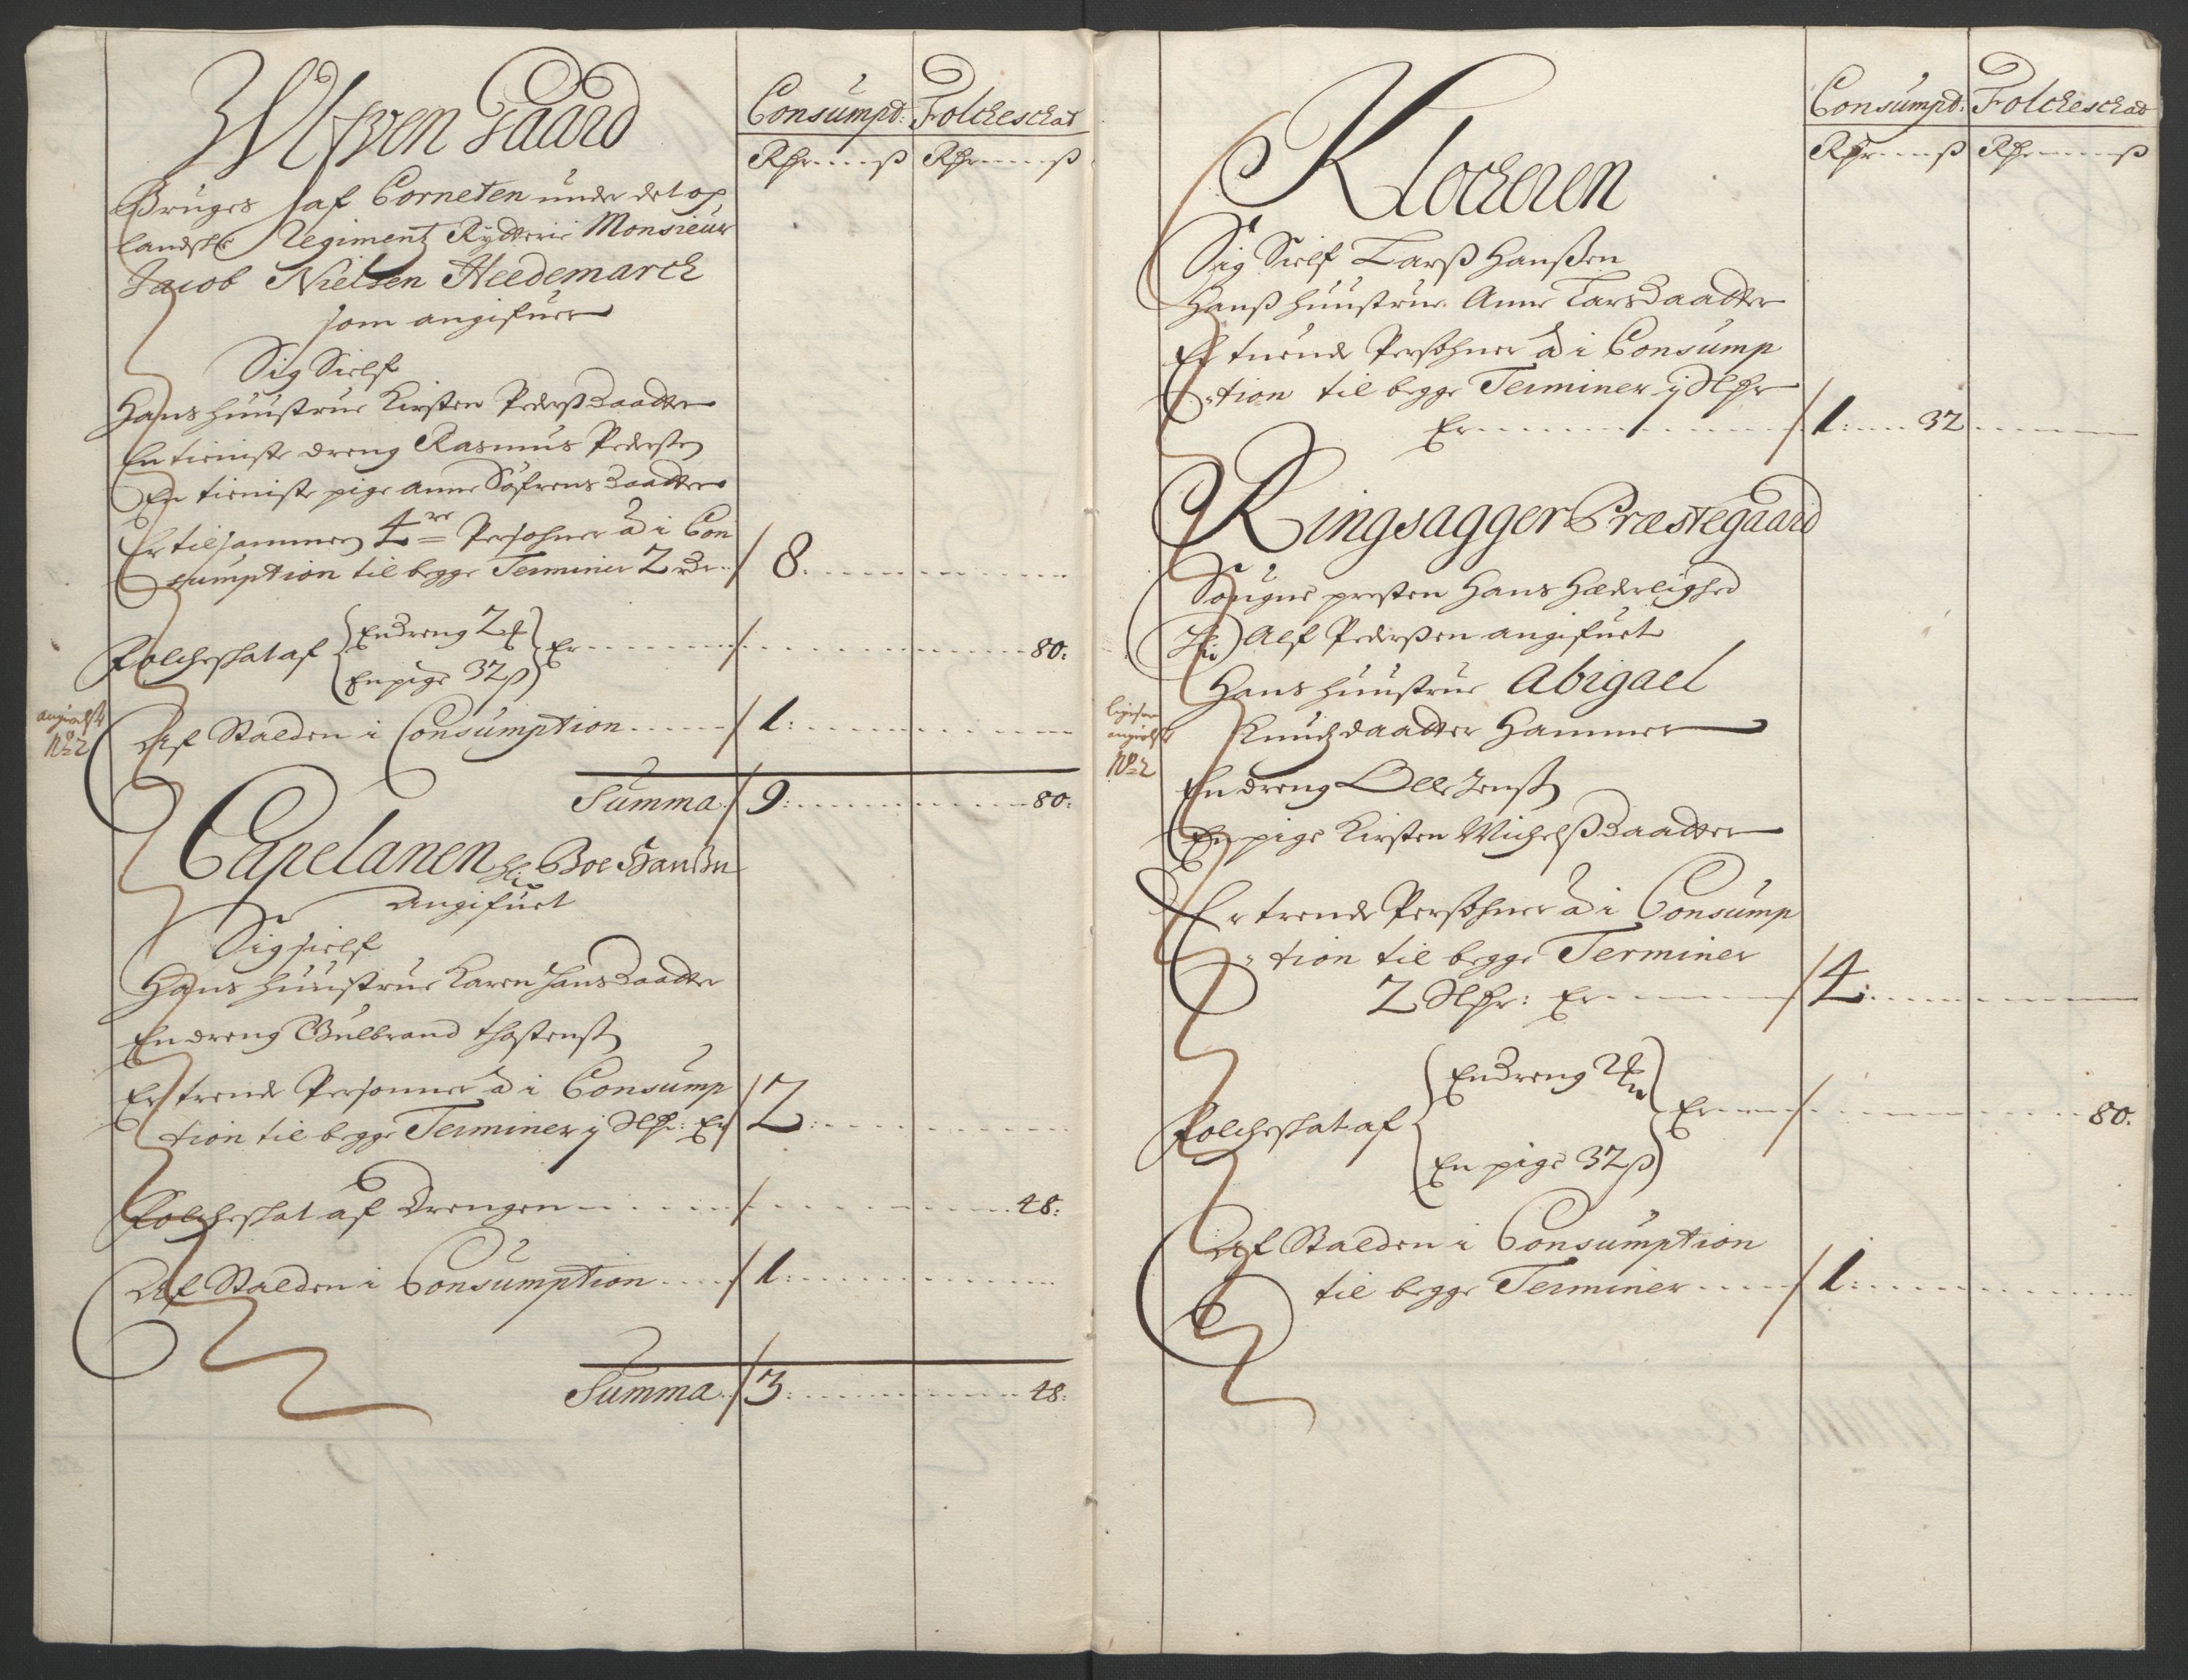 Consumpt: Folckeschat
Rdr ß Rdr ß
Ulfven Gaard
Bruges af Corneten under det op
landske Regiment Rytterie Monsieur
Jacob Nielsen Heedemarck
som angifuer
Sig Sielf
Hans huustrue Kirsten Pederßdaatter
En tieniste dreng Rasmus Pedersen
En tieniste pige Anne Søfrensdaatter
Er tilsammen 4re Persohner à i Con
sumption til begge Terminer 2 Rdr / 8:
Folcheskat af { En dreng 2 # } Er / 80:
{ En pige 32 ß }
angifvelse
No 2
Af Stalden i Consumption / 1:
Summa / 9: 80:
Capelanen Hr Boe Hanßen
Angifuet
Sig sielf
Hans huustrue Karen Hansdaatter
En dreng Gulbrand Thostenß
Er trende Personner à i Consump
tion til begge Terminer j Rdr: Er / 2:
Folcheskat af Drengen / 48:
Af Stalden i Consumption / 1:
Summa / 3: 48:
Consumpt: Folckeschat
Rdr ß Rdr ß
Klockeren
Sig Sielf Larß Hanßen
Hanß huustrue Anne Larsdaatter
Er tuende Persohner à i Consump
tion til begge Terminer j Rdr
Er / 1: 32
Ringsagger Præstegaard
Sougne presten Hans Hæderlighed
Hr Alf Pederßen angifuet
Hans huustrue Abigael
Knudzdaatter Hammer
No 2
En dreng Olle Jenß
En pige Kirsten Michelßdaatter
Er trende Persohner à i Consump
tion til begge Terminer
2 Rdr: Er / 4:
Folcheskat af { En dreng } Er / 80:
{ En pige 32 ß }
Af Stalden i Consumption
til begge Terminer / 1: